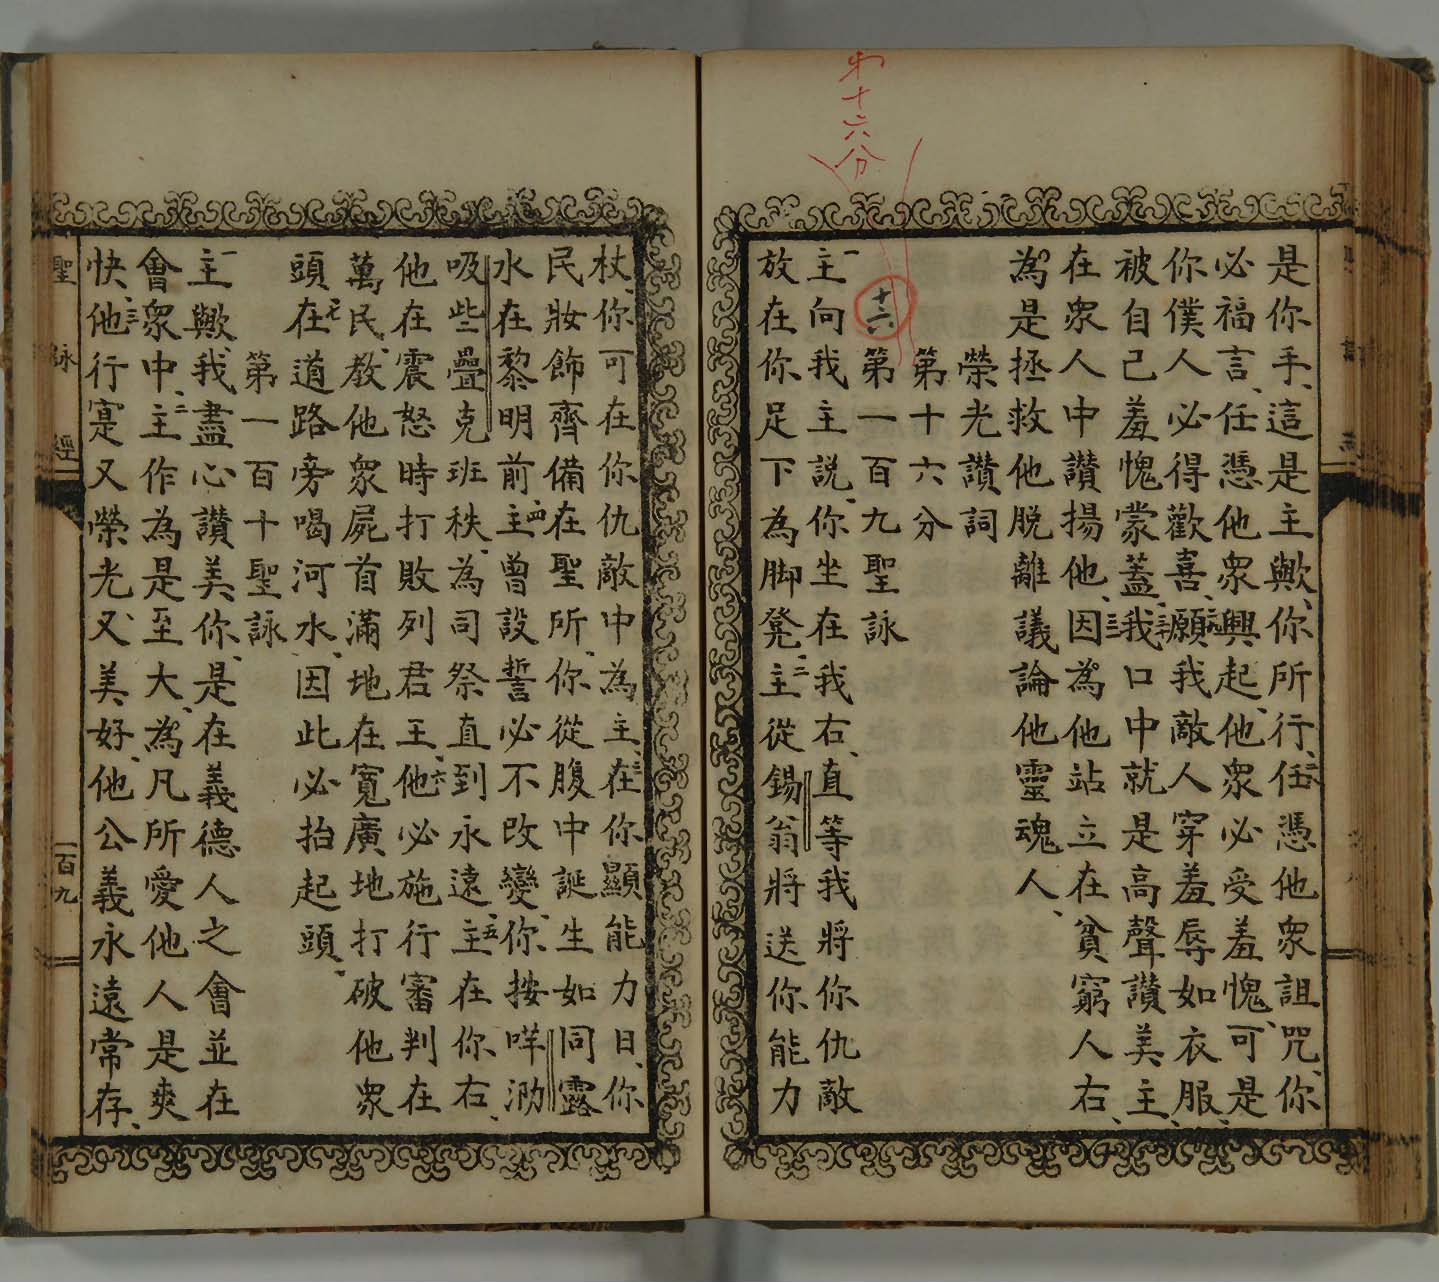 第十六分
十六
是你手、這是主歟、你所行、任憑他衆詛咒、你
必福言、任憑他衆興起、他衆必受羞愧、可是
你僕人必得歡喜、願我敵人穿羞辱如衣服、
被自己羞愧蒙蓋、三我口中就是高聲讚美主、
在衆人中讚揚他、因為他站立在貧窮人右、
為是拯救他脱離議論他靈魂人、
榮光讚詞
第十六分
第一百九聖詠
一主向我主説、你坐在我右、直等我將你仇敵
放在你足下為脚凳、二主從錫翁將送你能力
杖、你可在你仇敵中為主、三在你顯能力日、你
民妝飾齊備在聖所、你從腹中誕生如同露
水在黎明前、四主曾設誓必不改變、你按咩泐
吸些疊克班秩、為司祭直到永遠、五主在你右、
他在震怒時打敗列君王、六他必施行審判在
萬民、教他衆屍首滿地在寬廣地打破他衆
頭、七在道路旁喝河水、因此必抬起頭、
第一百十聖詠
一主歟、我盡心讚美你、是在義德人之會並在
會衆中、二主作為是至大、為凡所愛他人是爽
快、三他行寔又榮光、又美好、他公義永遠常存、
聖詠經
一百九